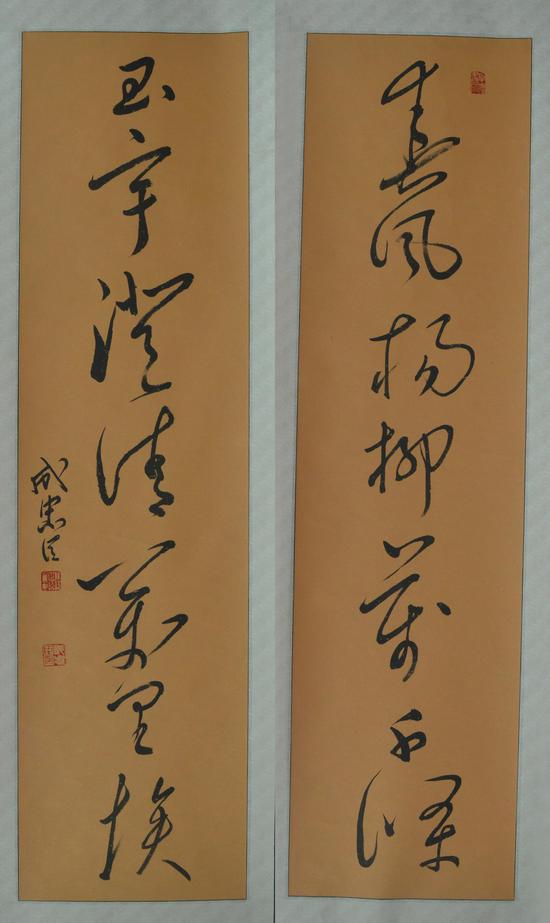 春風楊柳萬千條
玉宇澄清萬里埃
成忠臣